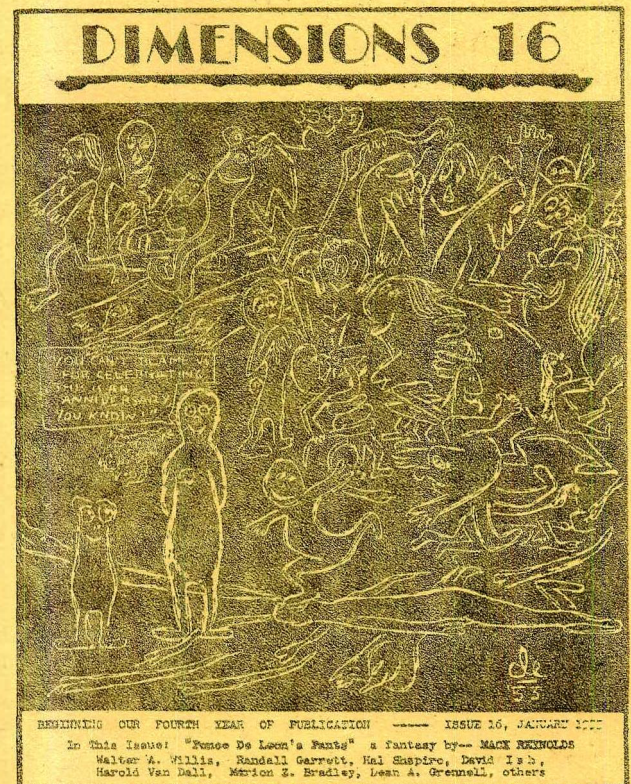 DIMENSIONS 16
YOU CAN'T BLAME 'EM
FOR CELEBRATING
THIS IS AN
ANNIVERSARY
YOU KNOW!"
de
53
BEGINNING OUR FOURTH YEAR OF PUBLICATION ---- ISSUE 16, JANUARY
In This Issue: "Ponce De Leon's Pants" a fantasy by-- MACK REYNOLDS
Walter A. Willis, Randall Garrett, Hal Shapiro, David Ish,
Harold Van Dall, Marion Z. Bradley, Dean A. Grennell, others